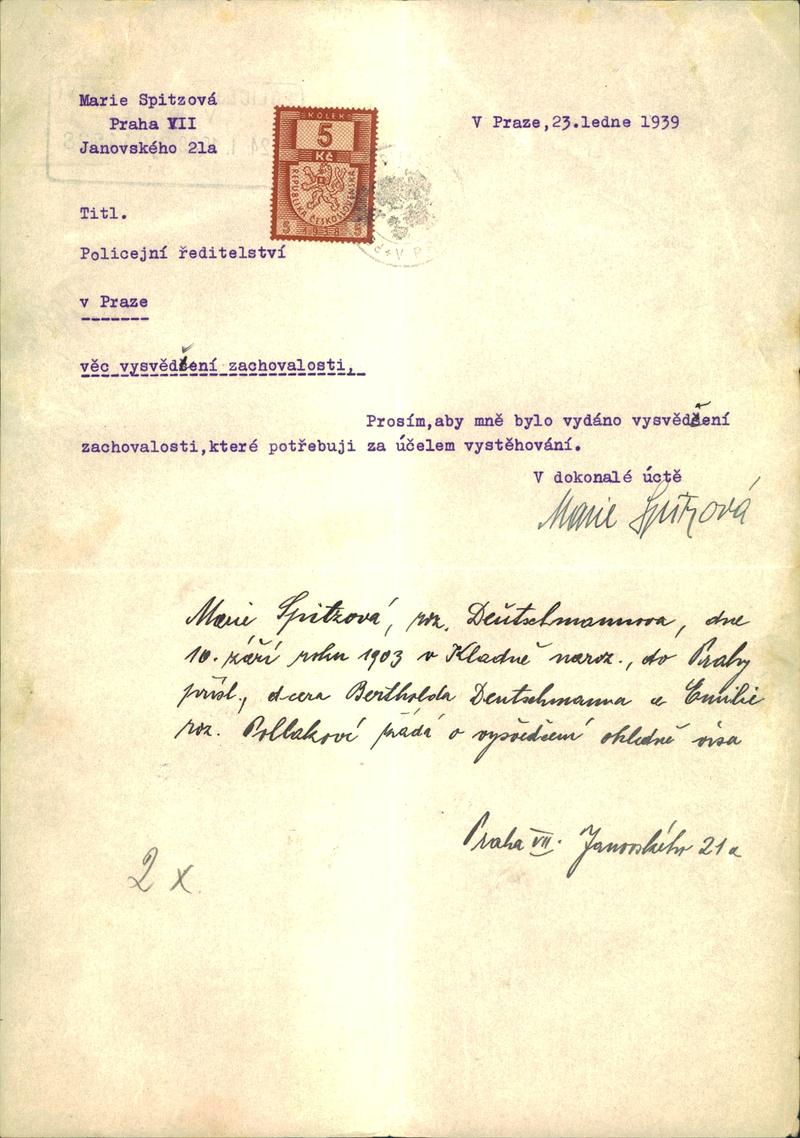 Marie Spitzová
Praha VII
Janovského 21a
V Praze,23.ledne 1939
KOLEK
5
Kč
REPUBLIKA ČESKOSLOVENSKÁ
5 1938 5
Titl.
Policejní ředitelství
v Praze
věc vysvědčení zachovalosti,
Prosím,aby mně bylo vydáno vysvědčení
zachovalosti,které potřebuji za účelem vystěhování.
V dokonalé úctě
Marie Spitzová
Marie Spitzová, roz. Deutschmannova, dne
10. září roku 1903 v Kladně naroz., do Prahy
přísl., dcera Bertholda Deutschmanna a Emilie
roz. Pollakové žádá o vysvědčení ohledně visa
Praha VII. Janovského 21a
2 x